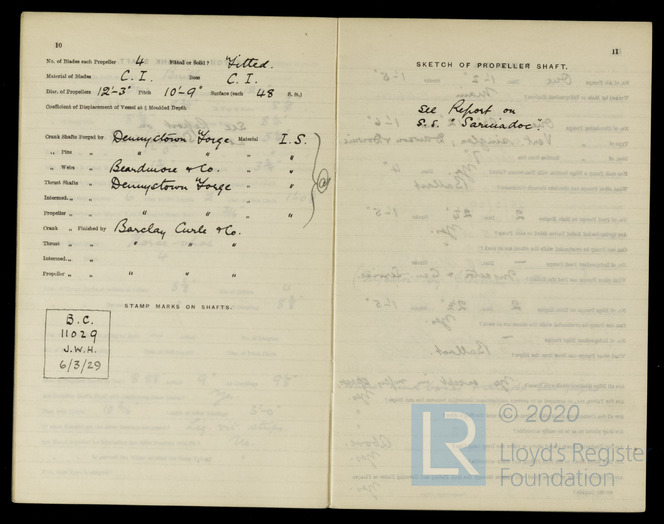 10
No. of Blades each Propeller 4 Fitted or Solid? Fitted.
Material of Blades C. I. Boss C. I.
Diar. of Propellers 12'-3" Pitch 10'-9" Surface (each 48 S. ft.)
Coefficient of Displacement of Vessel at ¾ Moulded Depth
Crank Shafts Forged by Dennystown Forge Material I. S.
„ Pins „ " " " "
„ Webs „ Beardmore & Co. „ "
Thrust Shafts „ Dennystown Forge „ "
Intermed. „ „ „
Propeller „ „ " " " „ "
Crank „ Finished by Barclay Curle & Co.
Thrust „ „ " " "
Intermed. „ „
Propeller „ „ " " "
STAMP MARKS ON SHAFTS.
B.C.
11029
J.W.H.
6/3/29
11
SKETCH OF PROPELLER SHAFT.
See Report on
S.S. "Sarniadoc".
© 2020
LR
Lloyd's Register
Foundation